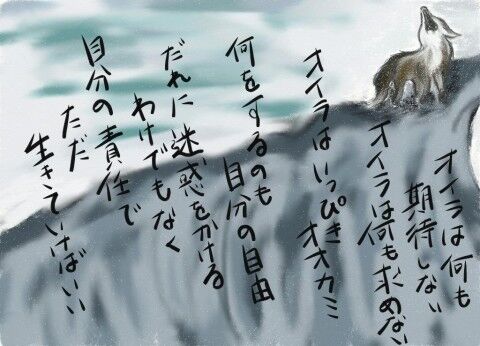 オイラは何も
期待しない
オイラは何も求めない
オイラはいっぴき
オオカミ
何をするのも
自分の自由
だれに迷惑をかける
わけでもなく
自分の責任で
ただ
生きていけばいい